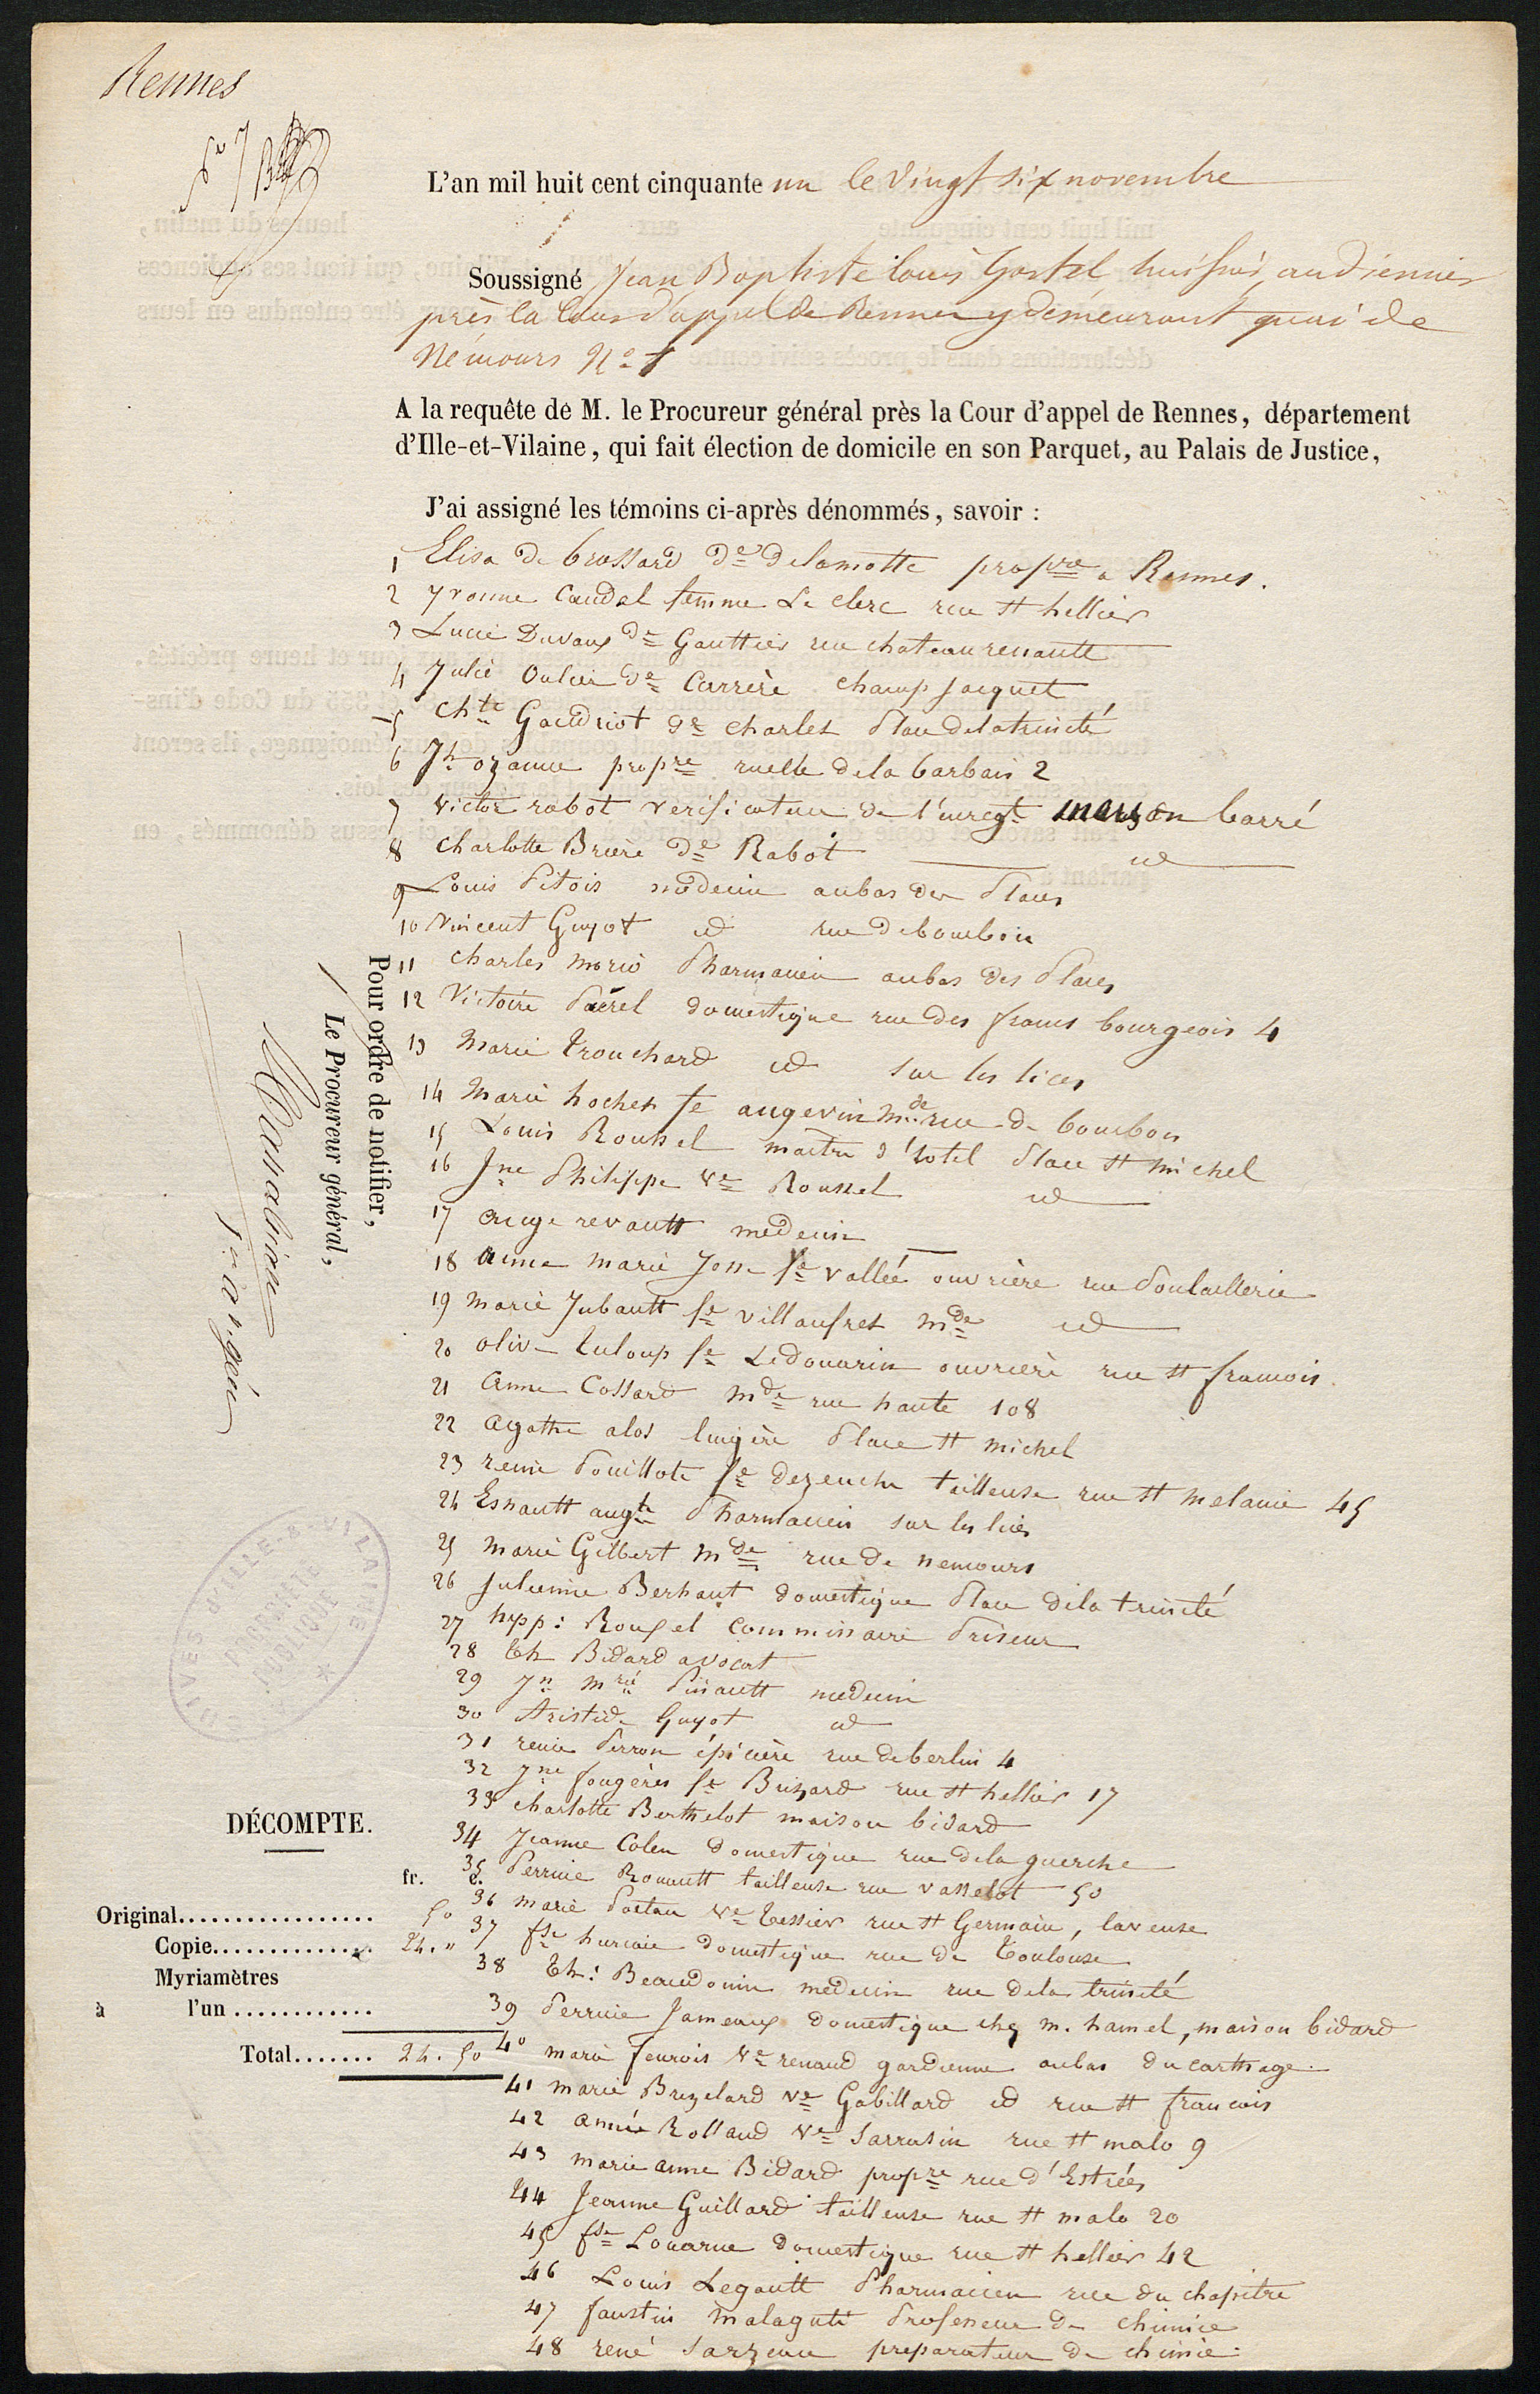 Rennes
L'an mil huit cent cinquante un le vingt six novembre
Soussigné Jean Baptiste louis Gastel huissier audiencier
près la Cour d'appel de Rennes y demeurant quai de
Nemours N°
A la requête de M. le Procureur général près la Cour d'appel de Rennes, département
d'Ille-et-Vilaine, qui fait élection de domicile en son Parquet, au Palais de Justice,
J'ai assigné les témoins ci-après dénommés, savoir :
1 Elisa de brossard De delamotte propre a Rennes.
2 yvonne Caudal femme Le clerc rue St hellier
3 Lucie Duvaux de Gauttier rue chateaurenault
4 Julie oulier de Carrère champ jacquet
5 Chte Gaudriot De charles Place delatrinité
6 Jh ozanne propre ruelle dela barbais 2
7 victor rabot verificateur de l'enregt maison barré
8 charlotte Brière De Rabot id
9 Louis Pitois médecin aubas des Places
10 vincent Guyot id rue de bourbon
11 charles morio Pharmacien aubas des Places
12 Victoire Paërel domestique rue des francs bourgeois 4
13 Marie trouchard id sur les lices
14 Marie hochet fe angevin mde rue de bourbon
15 Louis Roussel maitre d'hotel Place St michel
16 Jne Philippe ve Roussel id
17 ange revault médecin
18 anne marie Josse fe vallée ouvrière rue Poulaillerie
19 marie Jubault fe villaufret mde id
20 olive luloup fe Ledouarin ouvrière rue St francois
21 anne Cossard mde rue haute 108
22 agathe alos lingère Place St michel
23 reine Pouillote fe dezeuche tailleuse rue St melaine 45
24 Esnault augte Pharmacien sur les lices
25 marie Gilbert mde rue de nemours
26 Julienne Berhaut domestique Place dela trinité
27 hypp: Rouxel Commissaire Priseur
28 th Bidard avocat
29 Jn mrie Pinault médecin
30 Aristide Guyot id
31 reine Perron épicière rue deberlin 4
32 Jne fougères fe Brizard rue St hellier 17
33 charlotte Berthelot maison bidard
34 Jeanne Colen domestique rue dela guerche
35 Perrine Romault tailleuse rue vasselot 50
36 marie Postau ve tessier rue St Germain, laveuse
37 fse huriaie domestique rue de Toulouse
38 th: Beaudouin médecin rue dela trinité
39 Perrine Jameaux domestique chez m. hamel, maison bidard
40 marie fourois ve renaud gardienne aubas du carthage
41 marie Brezelard ve Gabillard id rue St francois
42 année Rolland ve Sarrasin rue St malo 9
43 marie anne Bidard propre rue d'Estrées
44 Jeanne Guillard tailleuse rue St malo 20
45 fse Louarne domestique rue St hellier 42
46 Louis Legault Pharmacien rue du chapitre
47 faustin malaguti Professeur de chimie
48 rené Sarzeau preparateur de chimie
Pour ordre de notifier,
Le Procureur général,
ARCHIVES D'ILLE-&-VILAINE
PROPRIÉTÉ
PUBLIQUE
DÉCOMPTE.
fr. c.
Original................. 50
Copie.............. 24. "
Myriamètres
à l'un ............
Total....... 24. 50